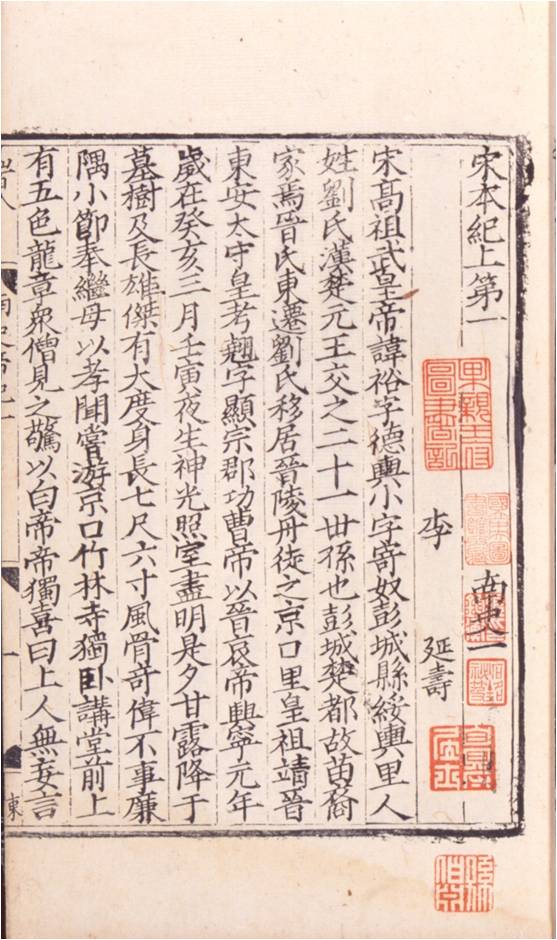 宋本紀上第一 南史一
李 延壽
宋髙祖武皇帝諱裕字德輿小字寄奴彭城縣綏輿里人
姓劉氏漢楚元王交之二十一丗孫也彭城楚都故苗裔
家焉晉氏東遷劉氏移居晉陵丹徒之京口里皇祖靖晉
東安太守皇考翹字顯宗郡功曹帝以晉哀帝興寧元年
歲在癸亥三月壬寅夜生神光照室盡明是夕甘露降于
墓樹及長雄傑有大度身長七尺六寸風骨奇偉不事廉
隅小節奉繼母以孝聞嘗游京口竹林寺獨卧講堂前上
有五色龍章衆僧見之驚以白帝帝獨喜曰上人無妄言